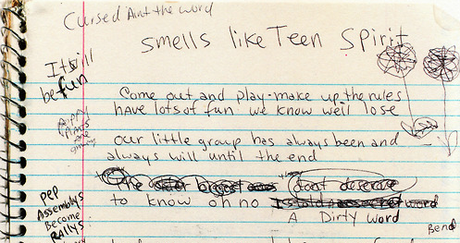 Cursed Aint the word
Smells like Teen Spirit
It will
be fun
Come out and play - make up the rules
have lots of fun we know we'll lose
our little group has always been and
always will until the end
The dont deserve
to know oh no word
A Dirty word
Pep
Assemblys
Become
RALLYS
Bend